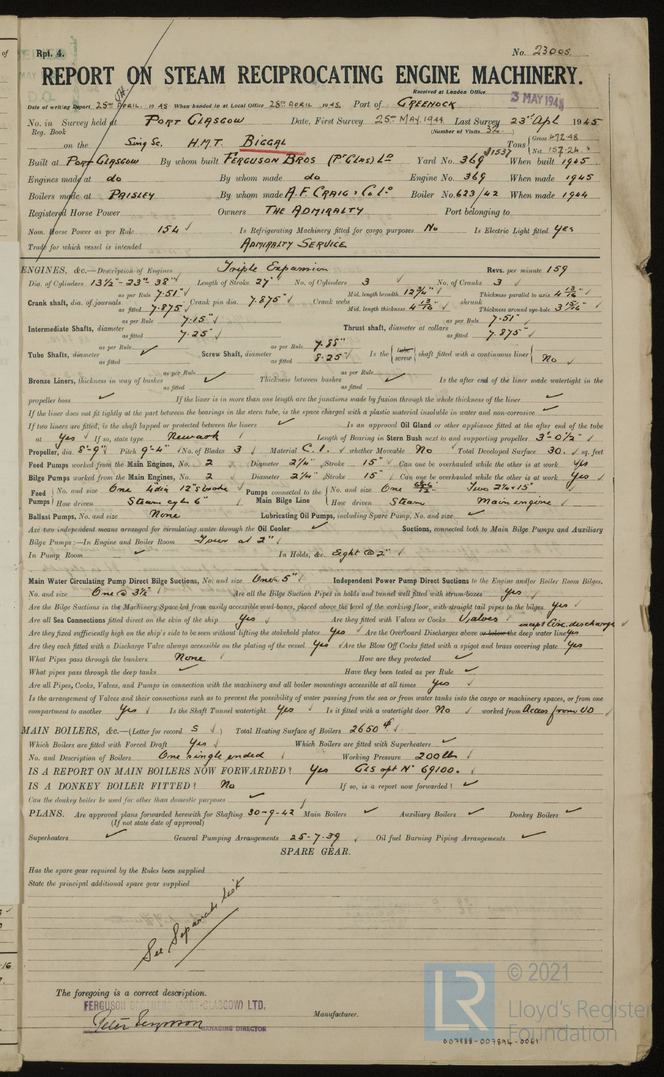 of
Rpt. 4.
No. 23005
REPORT ON STEAM RECIPROCATING ENGINE MACHINERY.
Received at London Office
3 MAY 1945
Date of writing Report 25th APRIL 1945 When handed in at Local Office 28th APRIL 1945 Port of GREENOCK
No. in Survey held at PORT GLASGOW Date, First Survey 25th MAY. 1944 Last Survey 23rd Apl 1945
Reg. Book (Number of Visits 32)
on the Sing Sc. H.M.T. BIGGAL Tons Gross 472.48 Net 157.24
Built at PORT GLASGOW By whom built FERGUSON BROS (Pt GLAS) Ld Yard No. 369 When built 1945
Engines made at do By whom made do Engine No. 369 When made 1945
Boilers made at PAISLEY By whom made A. F. CRAIG & Co Ld Boiler No. 623/42 When made 1944
Registered Horse Power Owners THE ADMIRALTY Port belonging to
Nom. Horse Power as per Rule 154 Is Refrigerating Machinery fitted for cargo purposes No Is Electric Light fitted yes
Trade for which vessel is intended ADMIRALTY SERVICE
ENGINES, &c.—Description of Engines Triple Expansion Revs. per minute 159
Dia. of Cylinders 13½"-23"-38" Length of Stroke 27" No. of Cylinders 3 No. of Cranks 3
Crank shaft, dia. of journals as per Rule 7.51" as fitted 7.875 Crank pin dia. 7.875" Crank webs Mid. length breadth 12¾" Mid. length thickness 4 13/16" shrunk Thickness parallel to axis 4 13/16" Thickness around eye-hole 3 15/16"
Intermediate Shafts, diameter as per Rule 7.15" as fitted 7.25" Thrust shaft, diameter at collars as per Rule 7.51" as fitted 7.875"
Tube Shafts, diameter as per Rule as fitted Screw Shaft, diameter as per Rule 7.88" as fitted 8.25" Is the tube screw shaft fitted with a continuous liner No
Bronze Liners, thickness in way of bushes as per Rule as fitted Thickness between bushes as per Rule as fitted Is the after end of the liner made watertight in the
propeller boss If the liner is in more than one length are the junctions made by fusion through the whole thickness of the liner
If the liner does not fit tightly at the part between the bearings in the stern tube, is the space charged with a plastic material insoluble in water and non-corrosive
If two liners are fitted, is the shaft lapped or protected between the liners Is an approved Oil Gland or other appliance fitted at the after end of the tube
at Yes If so, state type Newark Length of Bearing in Stern Bush next to and supporting propeller 3'-0½"
Propeller, dia. 8'-9" Pitch 9'-4" No. of Blades 3 Material C.I. whether Moveable No Total Developed Surface 30. sq. feet
Feed Pumps worked from the Main Engines, No. 2 Diameter 2¼" Stroke 15" Can one be overhauled while the other is at work yes
Bilge Pumps worked from the Main Engines, No. 2 Diameter 2¼" Stroke 15" Can one be overhauled while the other is at work Yes
Feed Pumps No. and size One 4 dia 12" stroke How driven Steam cyl 6" Pumps connected to the Main Bilge Line No. and size One Two 2¼ × 15" How driven Steam Main engine
Ballast Pumps, No. and size None Lubricating Oil Pumps, including Spare Pump, No. and size
Are two independent means arranged for circulating water through the Oil Cooler Suctions, connected both to Main Bilge Pumps and Auxiliary
Bilge Pumps:—In Engine and Boiler Room Four at 2"
In Pump Room In Holds, &c. Eight @ 2"
Main Water Circulating Pump Direct Bilge Suctions, No. and size One 5" Independent Power Pump Direct Suctions to the Engine and/or Boiler Room Bilges,
No. and size One @ 3½ Are all the Bilge Suction Pipes in holds and tunnel well fitted with strum-boxes yes
Are the Bilge Suctions in the Machinery Space led from easily accessible mud-boxes, placed above the level of the working floor, with straight tail pipes to the bilges Yes
Are all Sea Connections fitted direct on the skin of the ship Yes Are they fitted with Valves or Cocks Valves except Circ. discharge
Are they fixed sufficiently high on the ship's side to be seen without lifting the stokehold plates Yes Are the Overboard Discharges above or below the deep water line yes
Are they each fitted with a Discharge Valve always accessible on the plating of the vessel Yes Are the Blow Off Cocks fitted with a spigot and brass covering plate Yes
What Pipes pass through the bunkers None How are they protected
What pipes pass through the deep tanks Have they been tested as per Rule
Are all Pipes, Cocks, Valves, and Pumps in connection with the machinery and all boiler mountings accessible at all times Yes
Is the arrangement of Valves and their connections such as to prevent the possibility of water passing from the sea or from water tanks into the cargo or machinery spaces, or from one
compartment to another Yes Is the Shaft Tunnel watertight Yes Is it fitted with a watertight door No worked from Access from UD
MAIN BOILERS, &c.—(Letter for record S) Total Heating Surface of Boilers 2650
Which Boilers are fitted with Forced Draft Yes Which Boilers are fitted with Superheaters
No. and Description of Boilers One single ended Working Pressure 200 lbs
IS A REPORT ON MAIN BOILERS NOW FORWARDED? Yes GLS rpt No 69100.
IS A DONKEY BOILER FITTED? No If so, is a report now forwarded?
Can the donkey boiler be used for other than domestic purposes
PLANS. Are approved plans forwarded herewith for Shafting 30-9-42 Main Boilers Auxiliary Boilers Donkey Boilers
(If not state date of approval)
Superheaters General Pumping Arrangements 25-7-39 Oil fuel Burning Piping Arrangements
SPARE GEAR.
Has the spare gear required by the Rules been supplied
State the principal additional spare gear supplied
See Separate list
The foregoing is a correct description.
FERGUSON BROTHERS (PORT-GLASGOW) LTD.
Peter Ferguson MANAGING DIRECTOR Manufacturer.
LR © 2021
Lloyd's Register
Foundation
007888-007894-0061